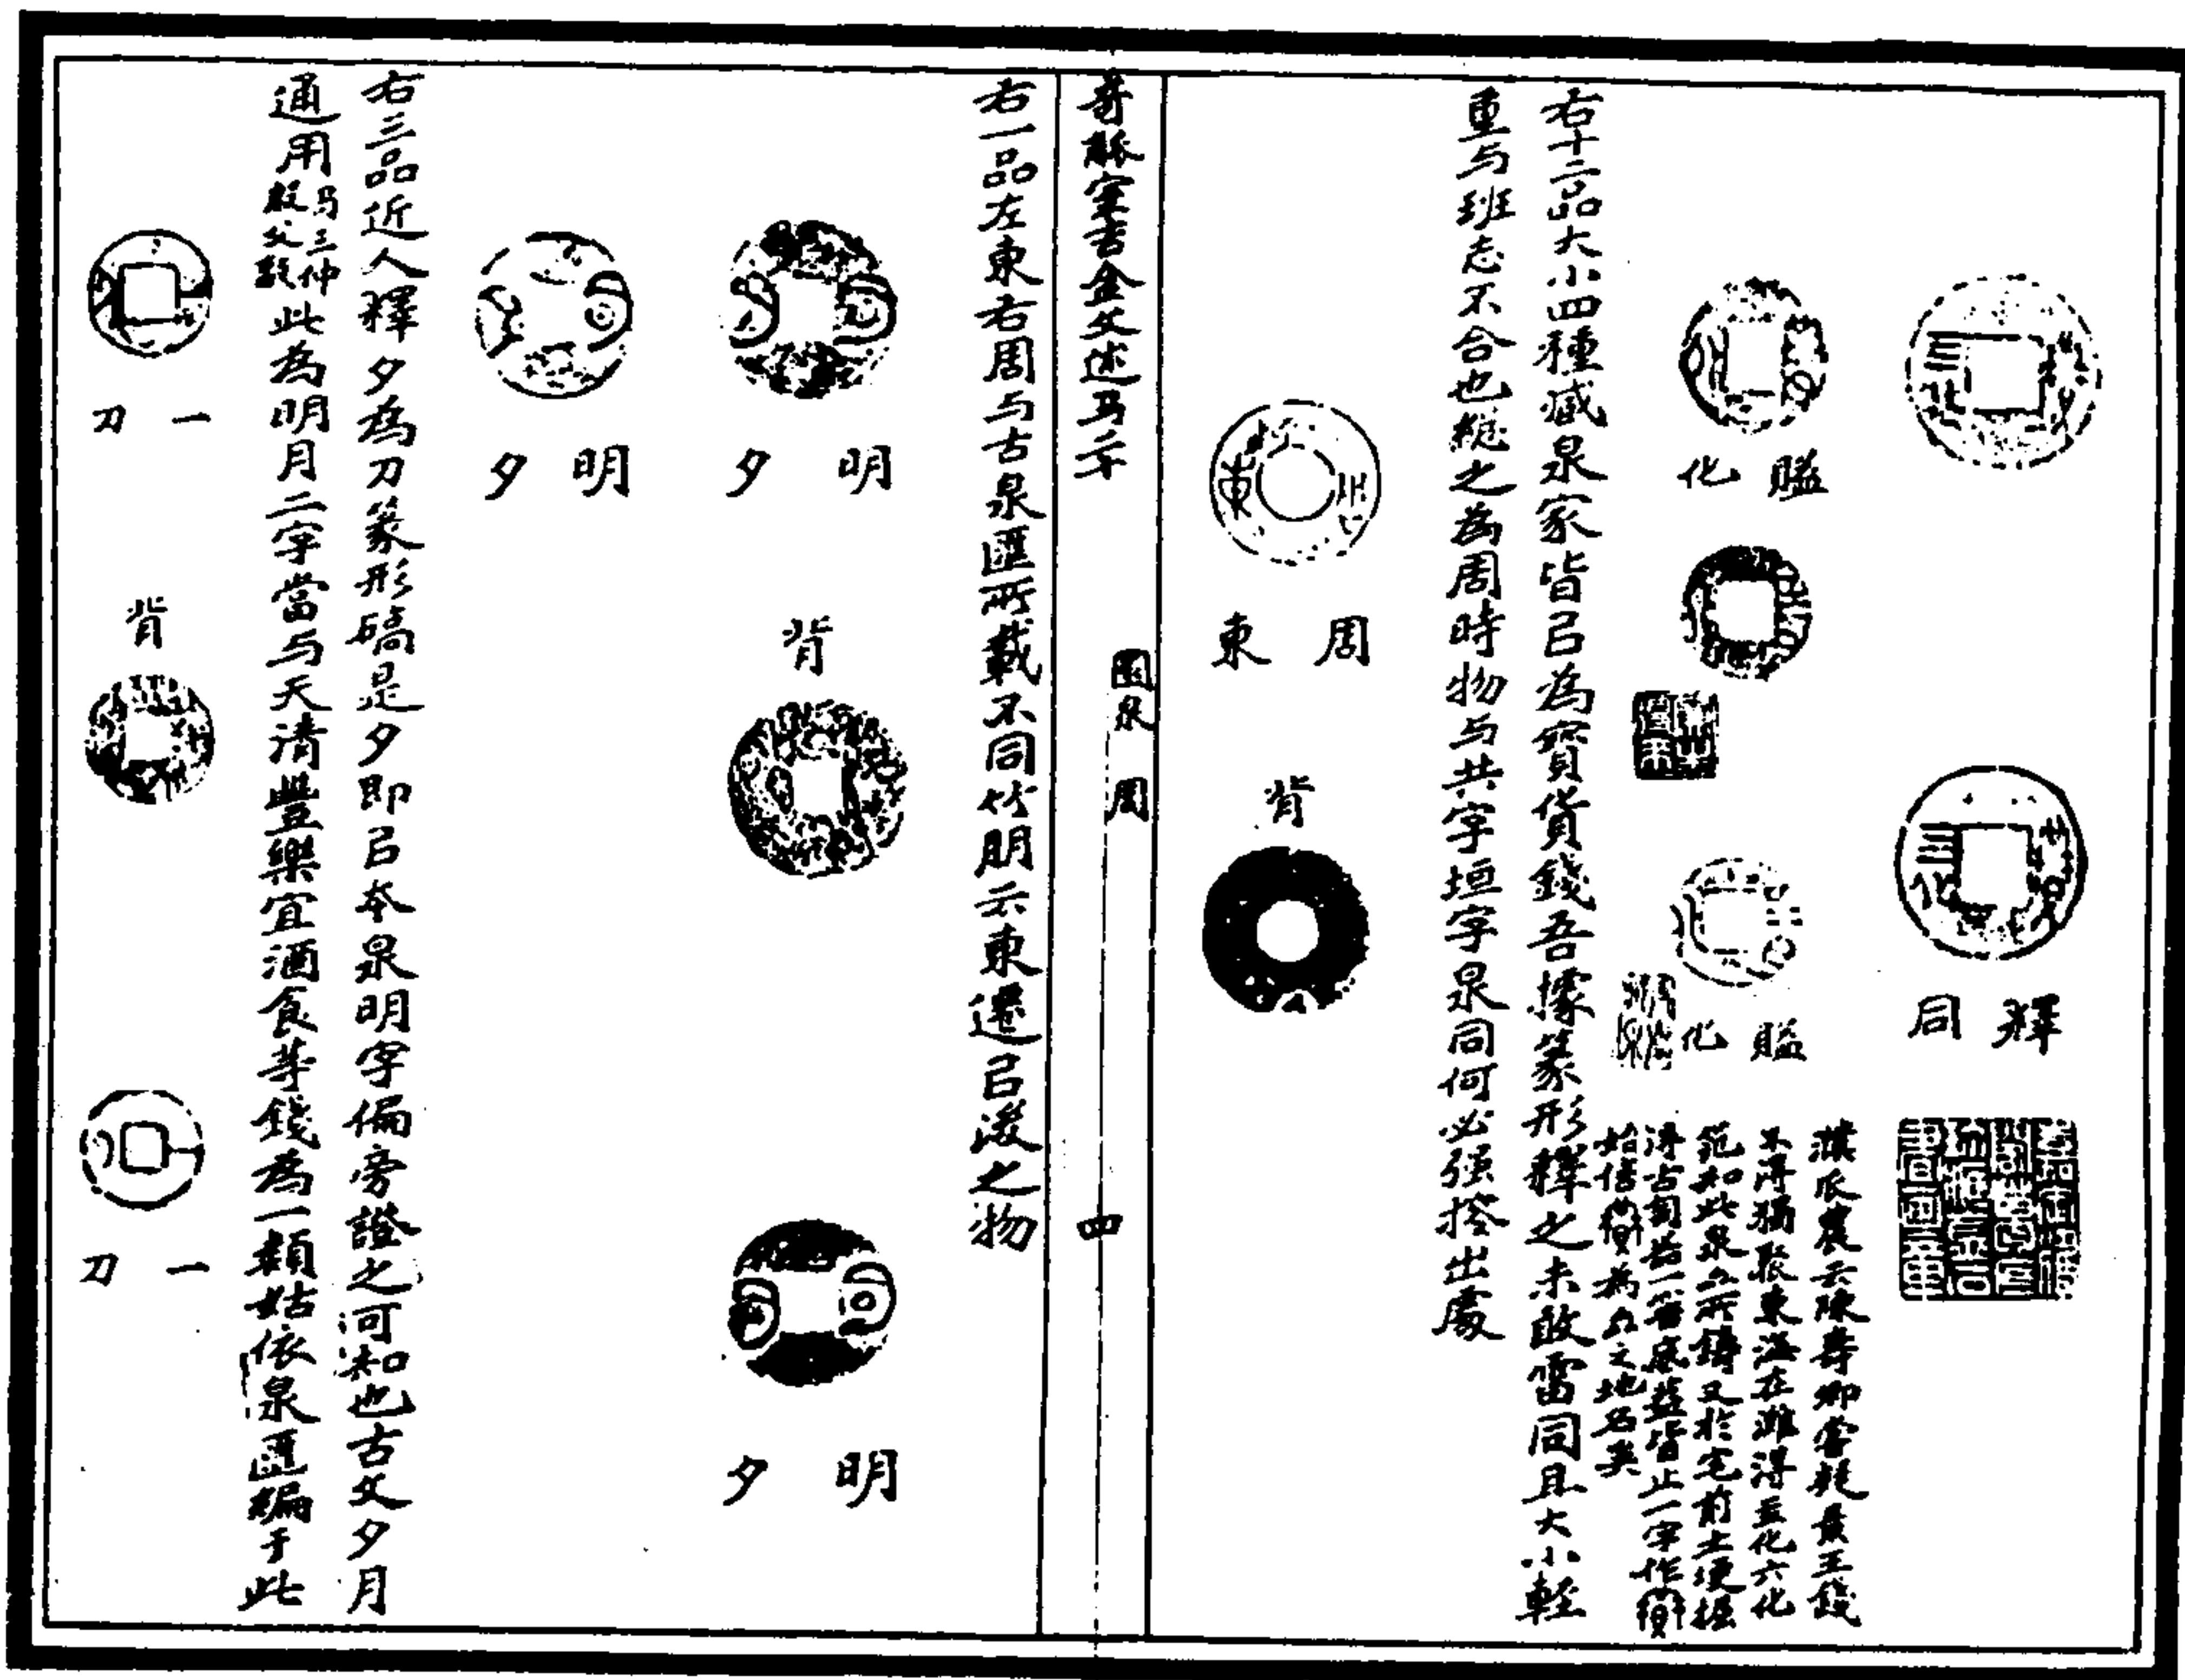 釋同
賹化
賹化
濰取農云陳壽卿嘗疑景王錢
不得獨聚東海在濰得益化六化
范知此泉亦所鑄又於宅前土埂掘
得古匋器一器底蓋皆止一字作
始信為亦之地名矣
右十二品大小四種藏泉家皆㠯為寶貨錢吾據篆形釋之未敢雷同且大小輕
重与班志不合也總之為周時物与共字垣字泉同何必强搜出處
周東
背
奇觚室吉金文述
圜泉 周
四
右一品左東右周与古泉匯所載不同竹朋云東遷㠯後之物
明夕
背
明夕
明夕
右三品近人釋夕為刀篆形碻是夕即㠯本泉明字偏旁證之可知也古文夕月
通用
此為明月二字當与天清豐樂宜酒食等錢為一類姑依泉匯編于此
一刀
背
一刀